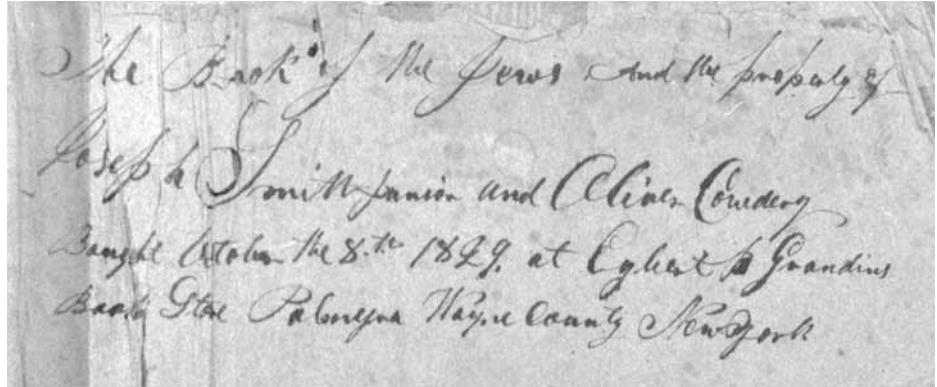 The Book of the Jews And the property of
Joseph Smith Junior and Oliver Cowdery
Bought October the 8th 1829, at Egbert B Grandins
Book Store Palmyra Wayne County New York